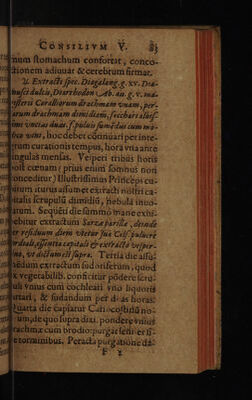 CONSILIVM V. 83
nium stomachum confortat, conco-
ctionem adiuuat & cerebrum firmat.
♃. Extracti spec. Diagalang. g. xv. Dia-
musci dulcis, Diarrhodon Ab. an. g. v. ma-
gisterij Corallorum drachmam vnam, per-
larum drachmam dimidiam, sacchari albis-
simi vncias duas. f. puluis
vino, hoc debet cōtinuari per inte-
grum curationis tempus, hora vna ante
singulas mensas. Vesperi tribus horis
post cœnam; prius enim somnus non
conceditur; Illustrissimus Princeps cu-
bitum iturus assumet extracti nostri ca-
pitalis scrupulū dimidiū, nebula inuo-
lutum. Sequēti die summo mane exhi-
bebitur extractum Sarzæ parillæ, deinde
per residuum diem vtetur suæ Cels. puluere
cordiali, essentia capitali & extracto vesper-
tino, vt dictum est supra. Tertia die assu-
medum extractum sudoriferum, quod
ex vegetabilib. conficitur pōdere scru-
puli vnius cum cochleari vno liquoris
& sudandum per duas horas.
Quarta die capiatur Catiocosthinū no-
strum, de quo supra dixi, pondere vnius
drachmæ cum brodio: purgat leniter si-
ne torminibus. Peracta purgatione da-
F 2